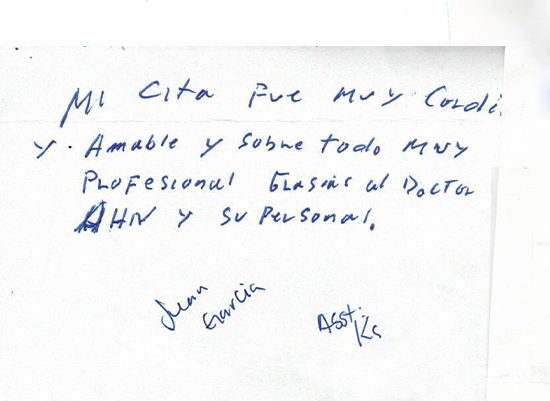 Mi cita fue muy Cordi
y. Amable y sobre todo muy
Profesional Grasias al Doctor
AHN y su personal.
Juan
Garcia
Asst.